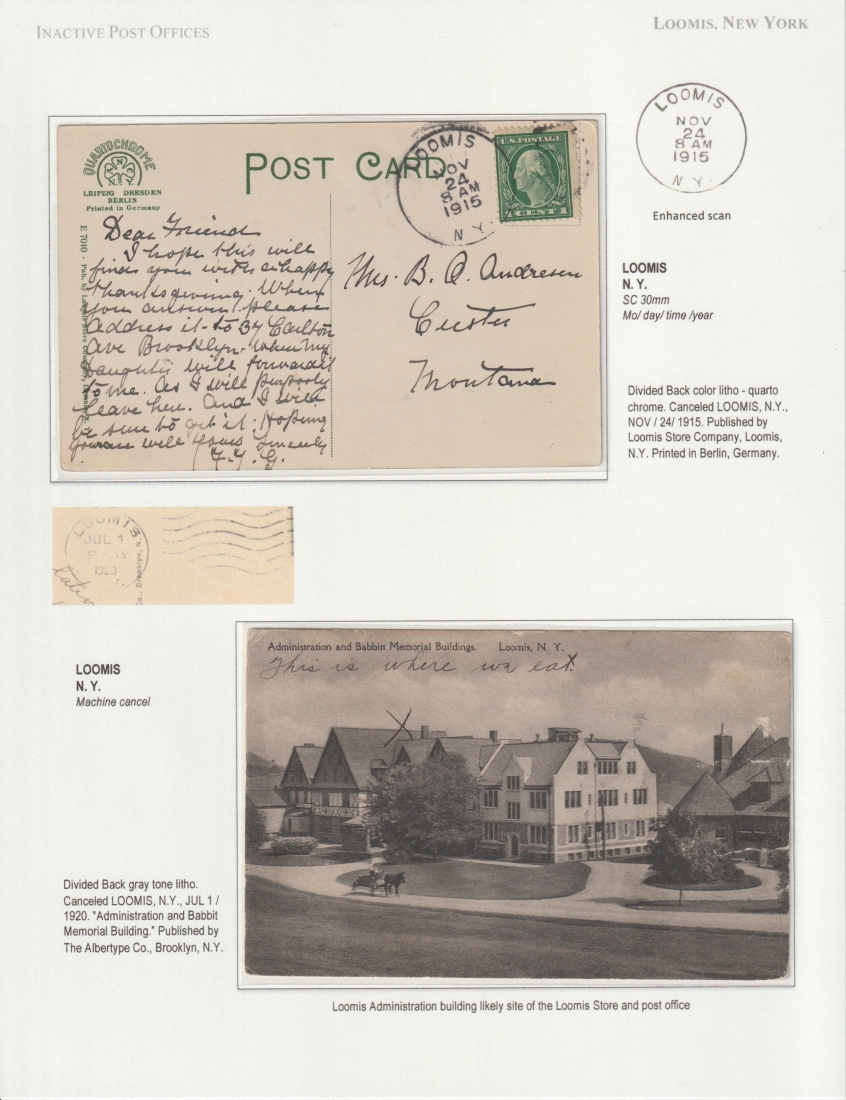 INACTIVE POST OFFICES
LOOMIS, NEW YORK
QUARTOCHROME
N.Y.
LEIPZIG DRESDEN
BERLIN
Printed in Germany
POST CARD
LOOMIS
NOV
24
8 AM
1915
N Y.
U.S. POSTAGE
1 CENT 1
LOOMIS
NOV
24
8 AM
1915
N Y.
Enhanced scan
E 7010 - Pub. by Loomis Store Company, Loomis, N.
Dear Friend
I hope this will
find you with a happy
Thanksgiving. When
you answer please
address it to 34 Carlton
Ave Brooklyn. When my
daughter will forward it
to me. As I will
leave here. And I will
be sure to get it. Hoping
you are well yours Sincerely
F. Y. G.
Mrs. B. Q. Andresen
Custer
Montana
LOOMIS
N. Y.
SC 30mm
Mo/ day/ time /year
Divided Back color litho - quarto
chrome. Canceled LOOMIS, N.Y.,
NOV / 24/ 1915. Published by
Loomis Store Company, Loomis,
N.Y. Printed in Berlin, Germany.
LOOMIS
JUL 1
AM
Co., Brooklyn, N.
LOOMIS
N. Y.
Machine cancel
Administration and Babbitt Memorial Buildings. Loomis, N. Y.
This is where we eat.
X
Divided Back gray tone litho.
Canceled LOOMIS, N.Y., JUL 1 /
1920. "Administration and Babbit
Memorial Building." Published by
The Albertype Co., Brooklyn, N.Y.
Loomis Administration building likely site of the Loomis Store and post office